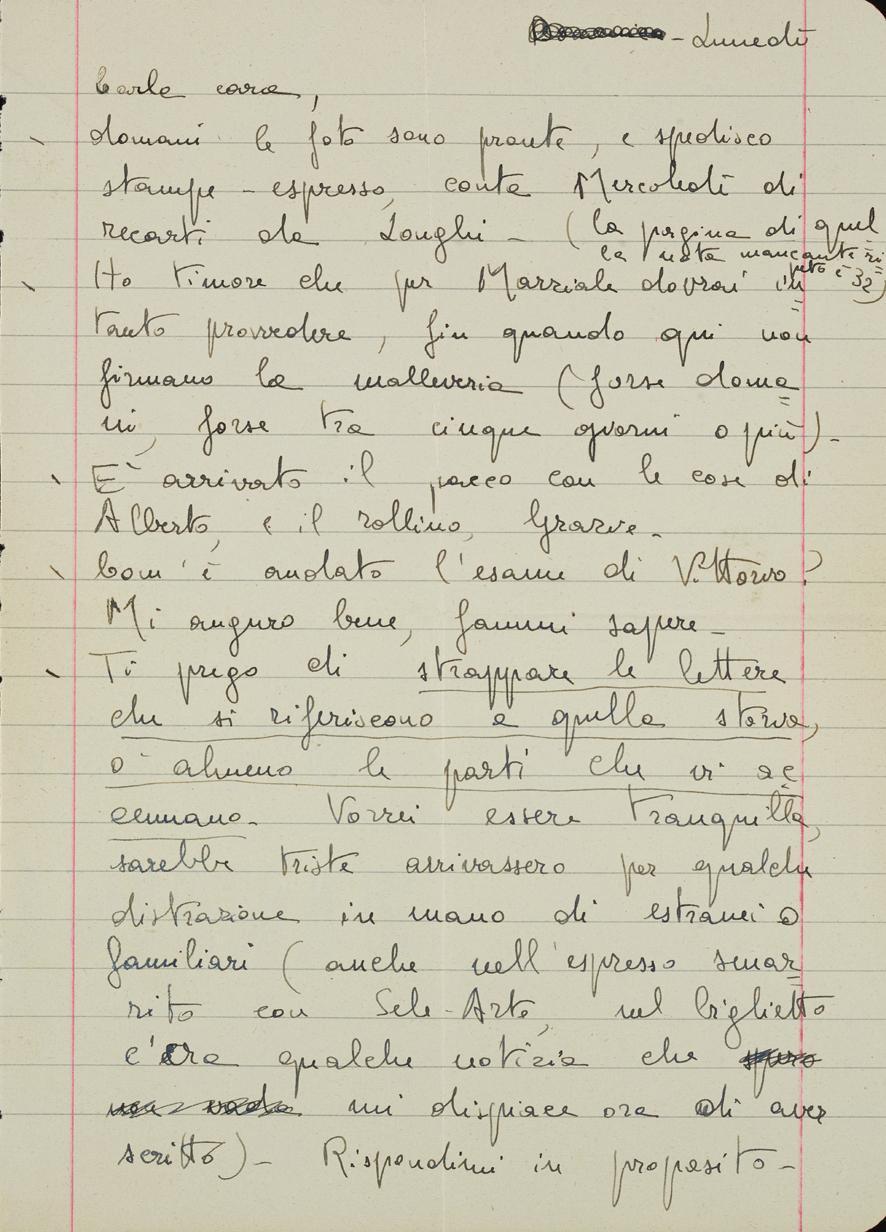 - Lunedì
Carla cara,
domani le foto sono pronte, e spedisco
stampe - espresso, conta Mercoledì di
recarti da Longhi - (la pagina di quel
la nota mancante ri
peto è 32)
Ho timore che per Marziale dovrai in
tanto provvedere, fin quando qui non
firmano la malleveria (forse doma
ni, forse tra cinque giorni o più) -
E' arrivato il pacco con le cose di
Alberto, e il rollino, Grazie -
Com'è andato l'esame di Vittorio?
Mi auguro bene, fammi sapere -
Ti prego di strappare le lettere
che si riferiscono a quella storia,
o almeno le parti che vi ac
cennano. Vorrei essere tranquilla,
sarebbe triste arrivassero per qualche
distrazione in mano di estranei o
familiari (anche nell'espresso smar
rito con Sele-Arte, nel biglietto
c'era qualche notizia che spero
non vada mi dispiace ora di aver
scritto) - Rispondimi in proposito -